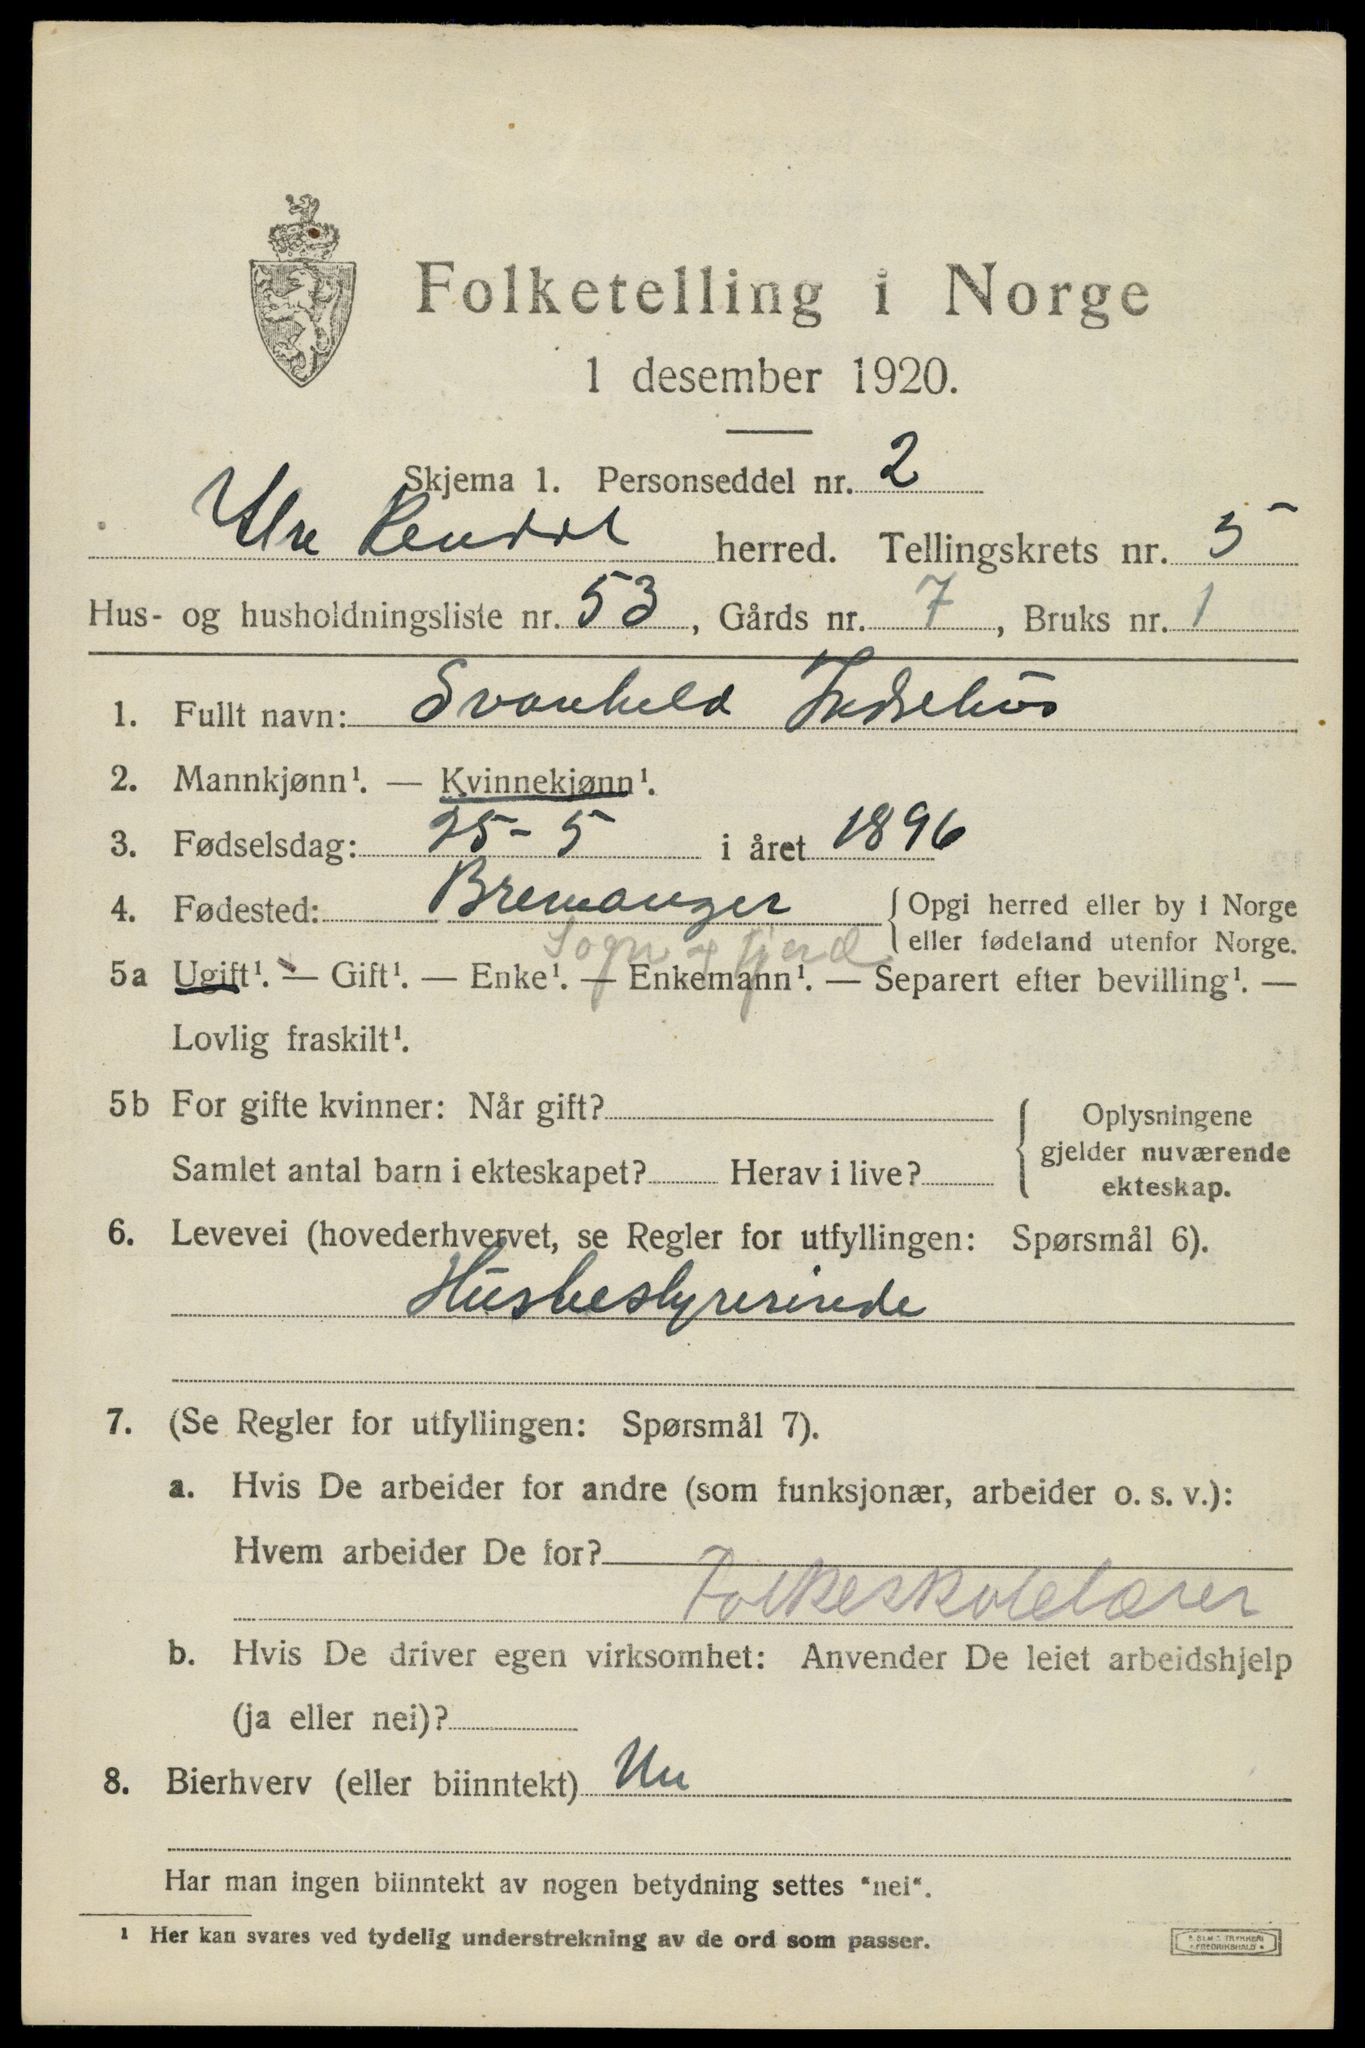 Folketelling i Norge
1 desember 1920.
Skjema 1. Personseddel nr. 2
Ytre Rendal herred. Tellingskrets nr. 5
Hus- og husholdningsliste nr. 53, Gårds nr. 7, Bruks nr. 1
1. Fullt navn: Svanhild Indrehus
2. Mannkjønn¹. — Kvinnekjønn¹.
3. Fødselsdag: 25-5 i året 1896
4. Fødested: Bremanger { Opgi herred eller by i Norge
eller fødeland utenfor Norge.
Sogn og fjord.
5a Ugift¹. — Gift¹. — Enke¹. — Enkemann¹. — Separert efter bevilling¹. —
Lovlig fraskilt¹.
5b For gifte kvinner: Når gift? { Oplysningene
gjelder nuværende
Samlet antal barn i ekteskapet? Herav i live? ekteskap.
6. Levevei (hovederhvervet, se Regler for utfyllingen: Spørsmål 6).
Husbestyrerinde
7. (Se Regler for utfyllingen: Spørsmål 7).
a. Hvis De arbeider for andre (som funksjonær, arbeider o. s. v.):
Hvem arbeider De for?
Folkeskolelærer
b. Hvis De driver egen virksomhet: Anvender De leiet arbeidshjelp
(ja eller nei)?
8. Bierhverv (eller biinntekt) Nei
Har man ingen biinntekt av nogen betydning settes "nei".
¹ Her kan svares ved tydelig understrekning av de ord som passer.